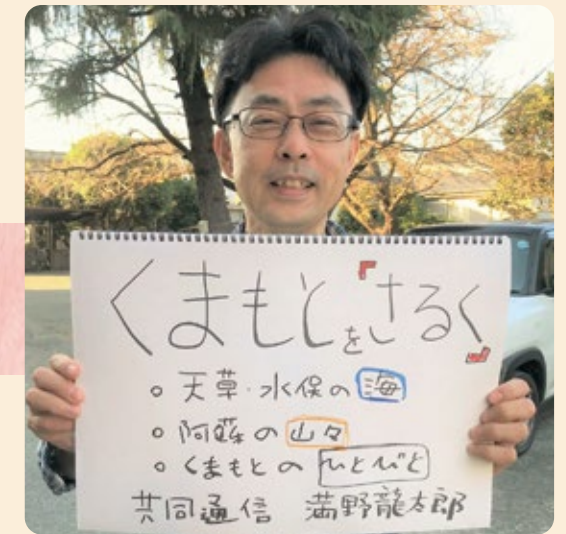 くまもとを『さるく』
○ 天草・水俣の海
○ 阿蘇の山々
○ くまもとのひとびと
共同通信 満野龍太郎